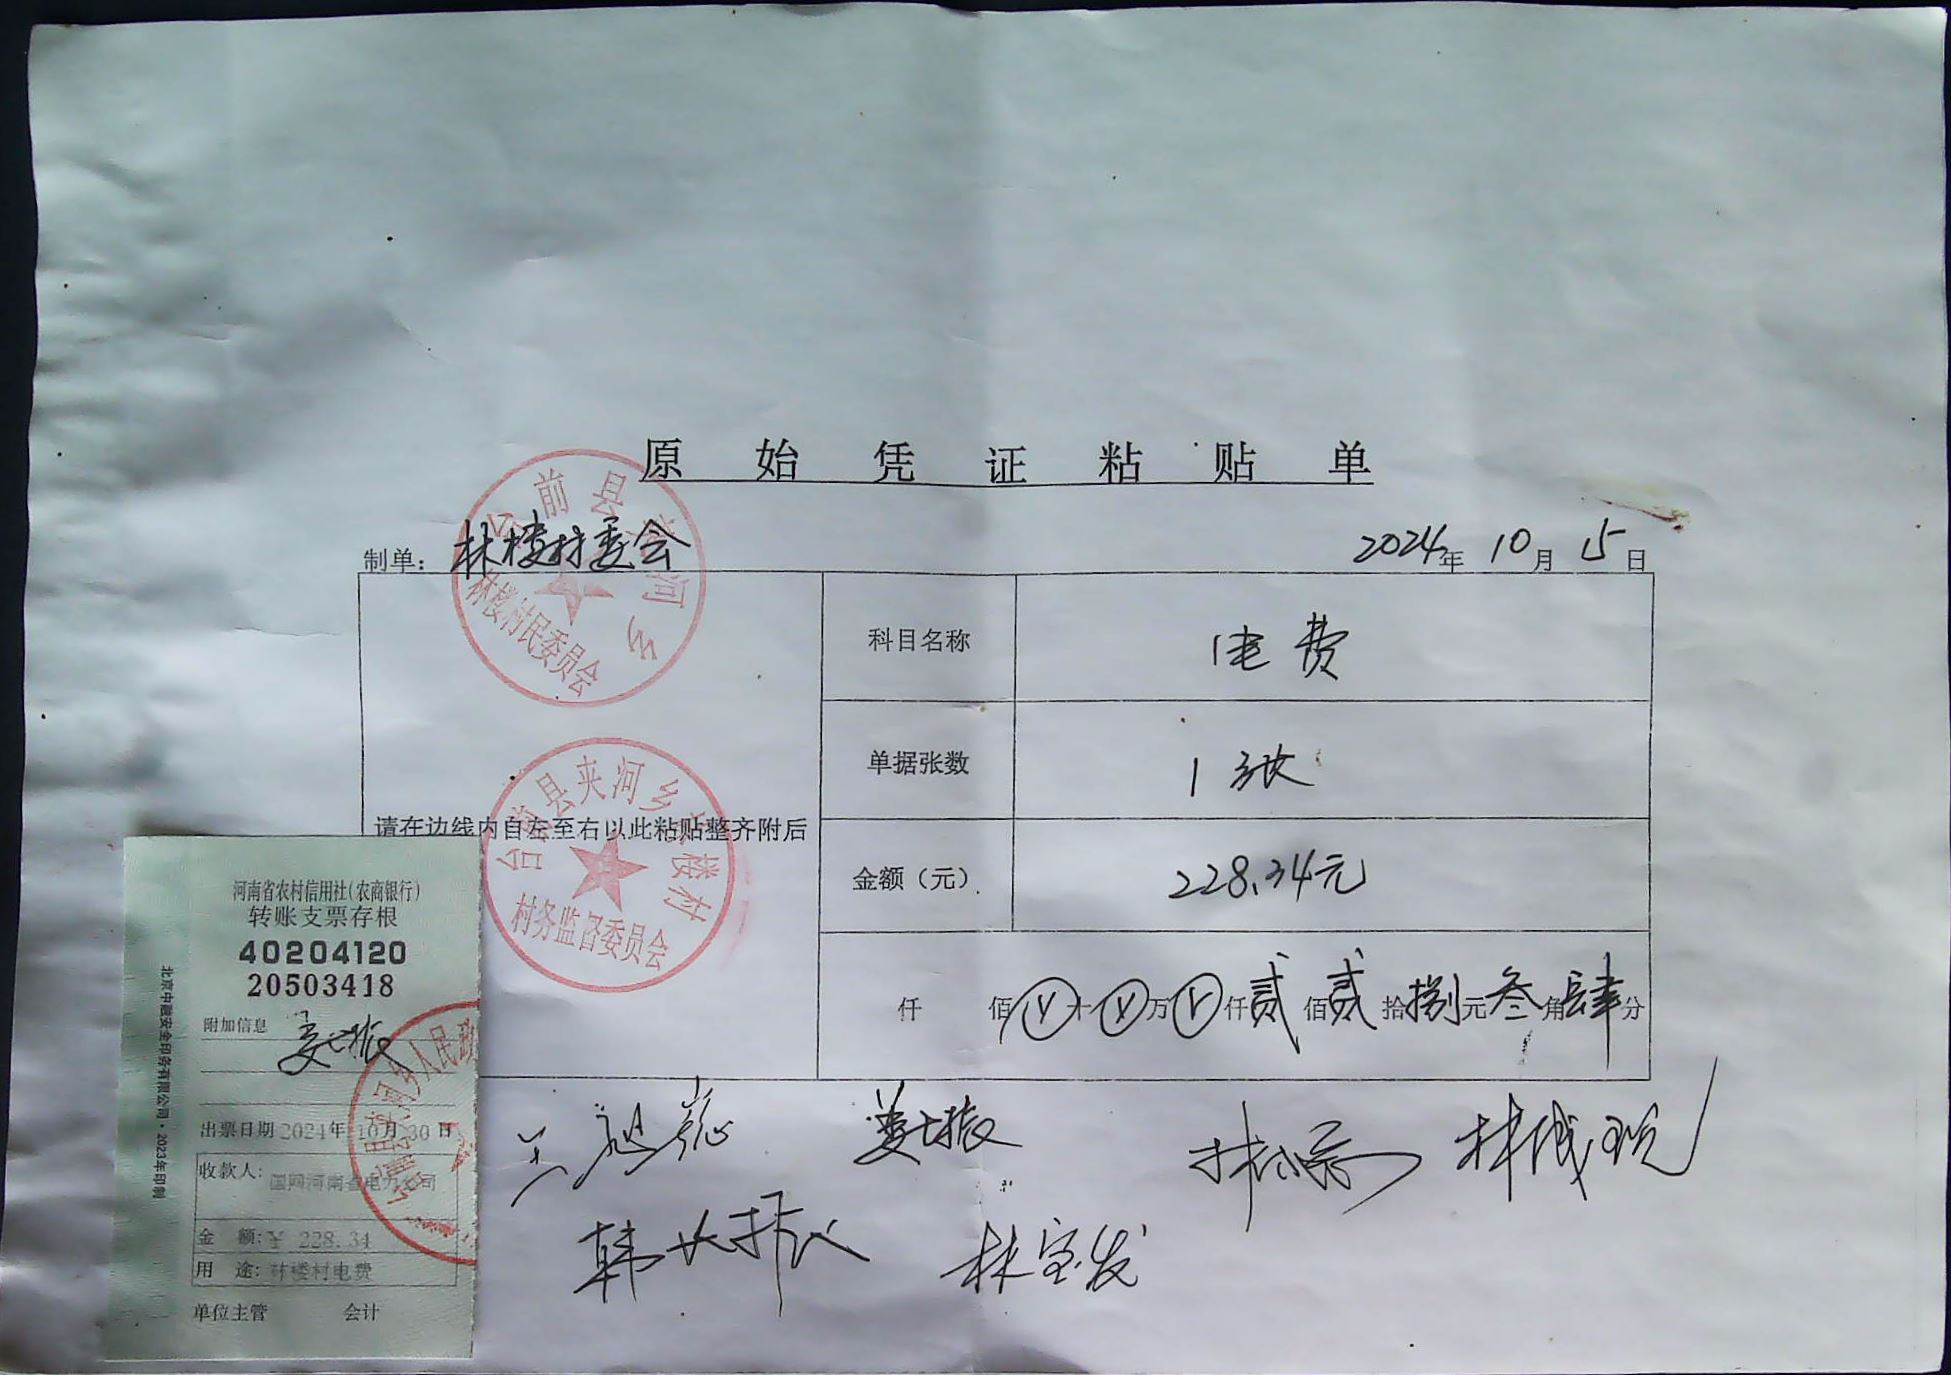 原始凭证粘贴单
制单：林楼村委会
2024年10月15日
科目名称 电费
单据张数 1张
请在边线内自左至右以此粘贴整齐附后
金额（元） 228.34元
仟 佰 ¥ 十 ¥ 万 ¥ 仟 贰 佰 贰 拾 捌 元 叁 角 肆 分
台前县夹河乡
林楼村民委员会
台前县夹河乡林楼村
村务监督委员会
河南省农村信用社（农商银行）
转账支票存根
40204120
20503418
附加信息
出票日期 2024年10月30日
收款人：国网河南省电力公司
金 额：¥ 228.34
用 途：林楼村电费
单位主管 会计
北京中融安全印务有限公司·2023年印制
台前县夹河乡人民政
林宝发